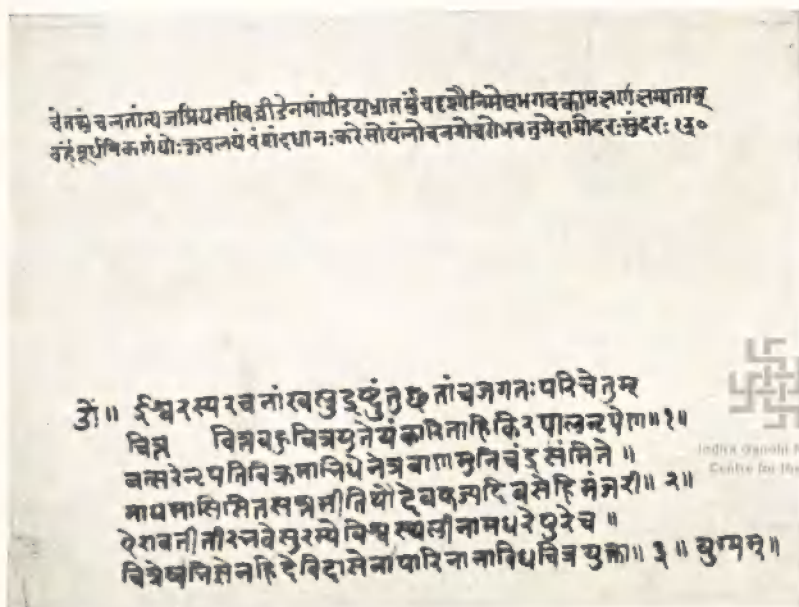 चेतश्चंचलतांत्यजप्रियसखिव्रीडेनमांपीडयभ्रातर्मुंचदृशौनिमेषभगवन्कामक्षणंक्षम्यताम्
वर्हंमूर्धनिकर्णयोःकुवलयंवंशंदधानःकरेसोयंलोचनगोचरोभवतुमेदामोदरःसुंदरः १३०
ॐ॥ ईश्वरस्यरचनांखलुद्रष्टुंतुछतांचजगतःपरिचेतुम्
चित्र चित्रबहुचित्रयुतेयंकारिताहिकिरपालनृपेण॥१॥
वत्सरेनृपतिविक्रमाभिधेनेत्रबाणमुनिचंद्रसंमिते॥
माघमासिसितसप्तमीतिथौदेवपूज्यदिवसेहिमंजरी॥२॥
ऐरावतीतीरभवेसुरम्येविश्वस्थलीनामधरेपुरेच॥
चित्रेष्वभिज्ञेनहिदेविदासेनापारिनानाविधचित्रयुक्ता॥३॥युग्मम्॥
Indira Gandhi N
Centre for the